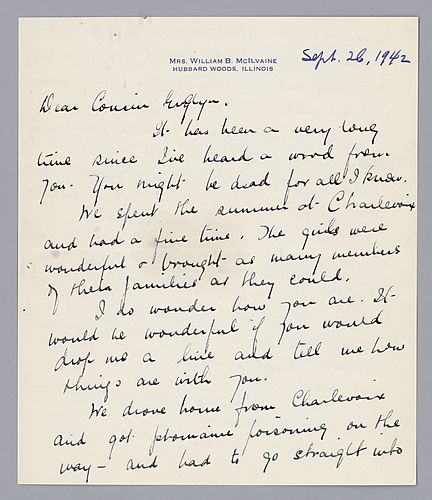 MRS. WILLIAM B. MCILVAINE
HUBBARD WOODS, ILLINOIS
Sept. 26, 1942
Dear Cousin Evelyn.
It has been a very long
time since I've heard a word from
you. You might be dead for all I know.
We spent the summer at Charlevoix
and had a fine time. The girls were
wonderful & brought as many members
of their families as they could.
I do wonder how you are. It
would be wonderful if you would
drop me a line and tell me how
things are with you.
We drove home from Charlevoix
and got ptomaine poisoning on the
way – and had to go straight into